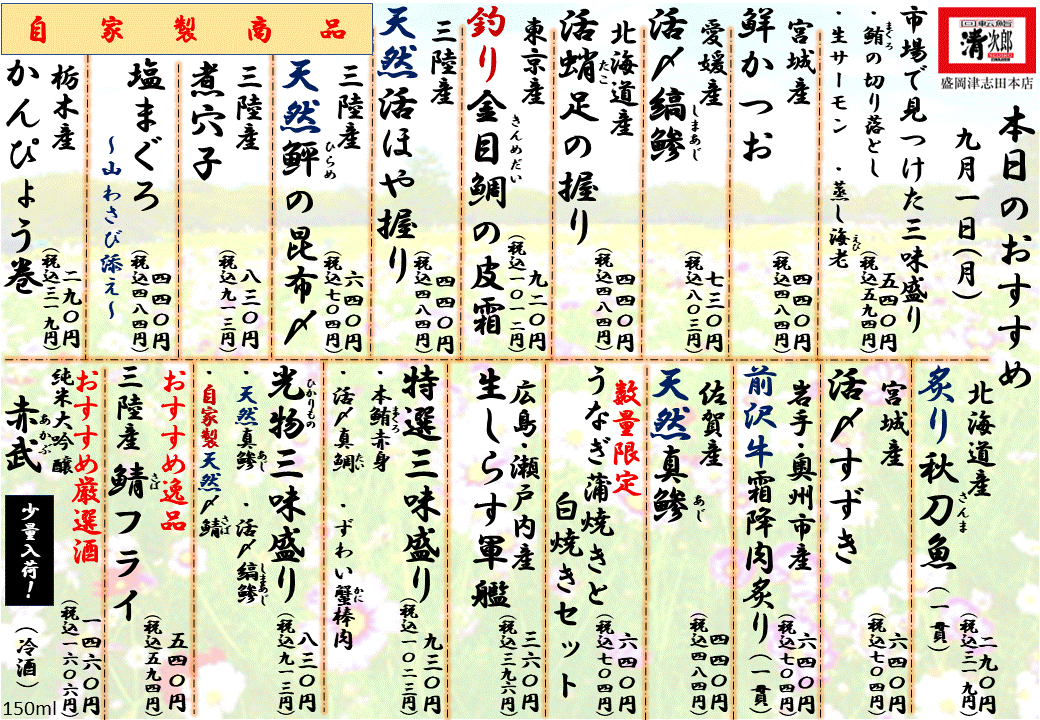 回転鮨
清次郎
盛岡津志田本店
本日のおすすめ
九月一日(月)
市場で見つけた三味盛り
・鮪の切り落とし
まぐろ
・生サーモン ・蒸し海老
えび
五四〇円
(税込五九四円)
宮城産
鮮かつお
四四〇円
(税込四八四円)
愛媛産
活〆縞鯵
しまあじ
七三〇円
(税込八〇三円)
北海道産
活蛸足の握り
たこ
四四〇円
(税込四八四円)
東京産
釣り金目鯛の皮霜
きんめだい
九二〇円
(税込一〇一二円)
三陸産
天然活ほや握り
四四〇円
(税込四八四円)
自家製商品
三陸産
天然鮃の昆布〆
ひらめ
六四〇円
(税込七〇四円)
三陸産
煮穴子
八三〇円
(税込九一三円)
塩まぐろ
~山わさび添え~
四四〇円
(税込四八四円)
栃木産
かんぴょう巻
二九〇円
(税込三一九円)
北海道産
炙り秋刀魚(一貫)
さんま
二九〇円
(税込三一九円)
宮城産
活〆すずき
六四〇円
(税込七〇四円)
岩手・奥州市産
前沢牛霜降肉炙り(一貫)
六四〇円
(税込七〇四円)
佐賀産
天然真鯵
あじ
四四〇円
(税込四八四円)
数量限定
うなぎ蒲焼きと
白焼きセット
六四〇円
(税込七〇四円)
広島・瀬戸内産
生しらす軍艦
三六〇円
(税込三九六円)
特選三味盛り
・本鮪赤身
まぐろ
・活〆真鯛 ・ずわい蟹棒肉
たい
かに
九三〇円
(税込一〇二三円)
光物三味盛り
ひかりもの
・天然真鯵 ・活〆縞鯵
あじ
しまあじ
・自家製天然〆鯖
さば
八三〇円
(税込九一三円)
おすすめ逸品
三陸産 鯖フライ
さば
五四〇円
(税込五九四円)
おすすめ厳選酒
純米大吟醸
赤武
あかぶ
少量入荷!
(冷酒)
一四六〇円
(税込一六〇六円)
150ml